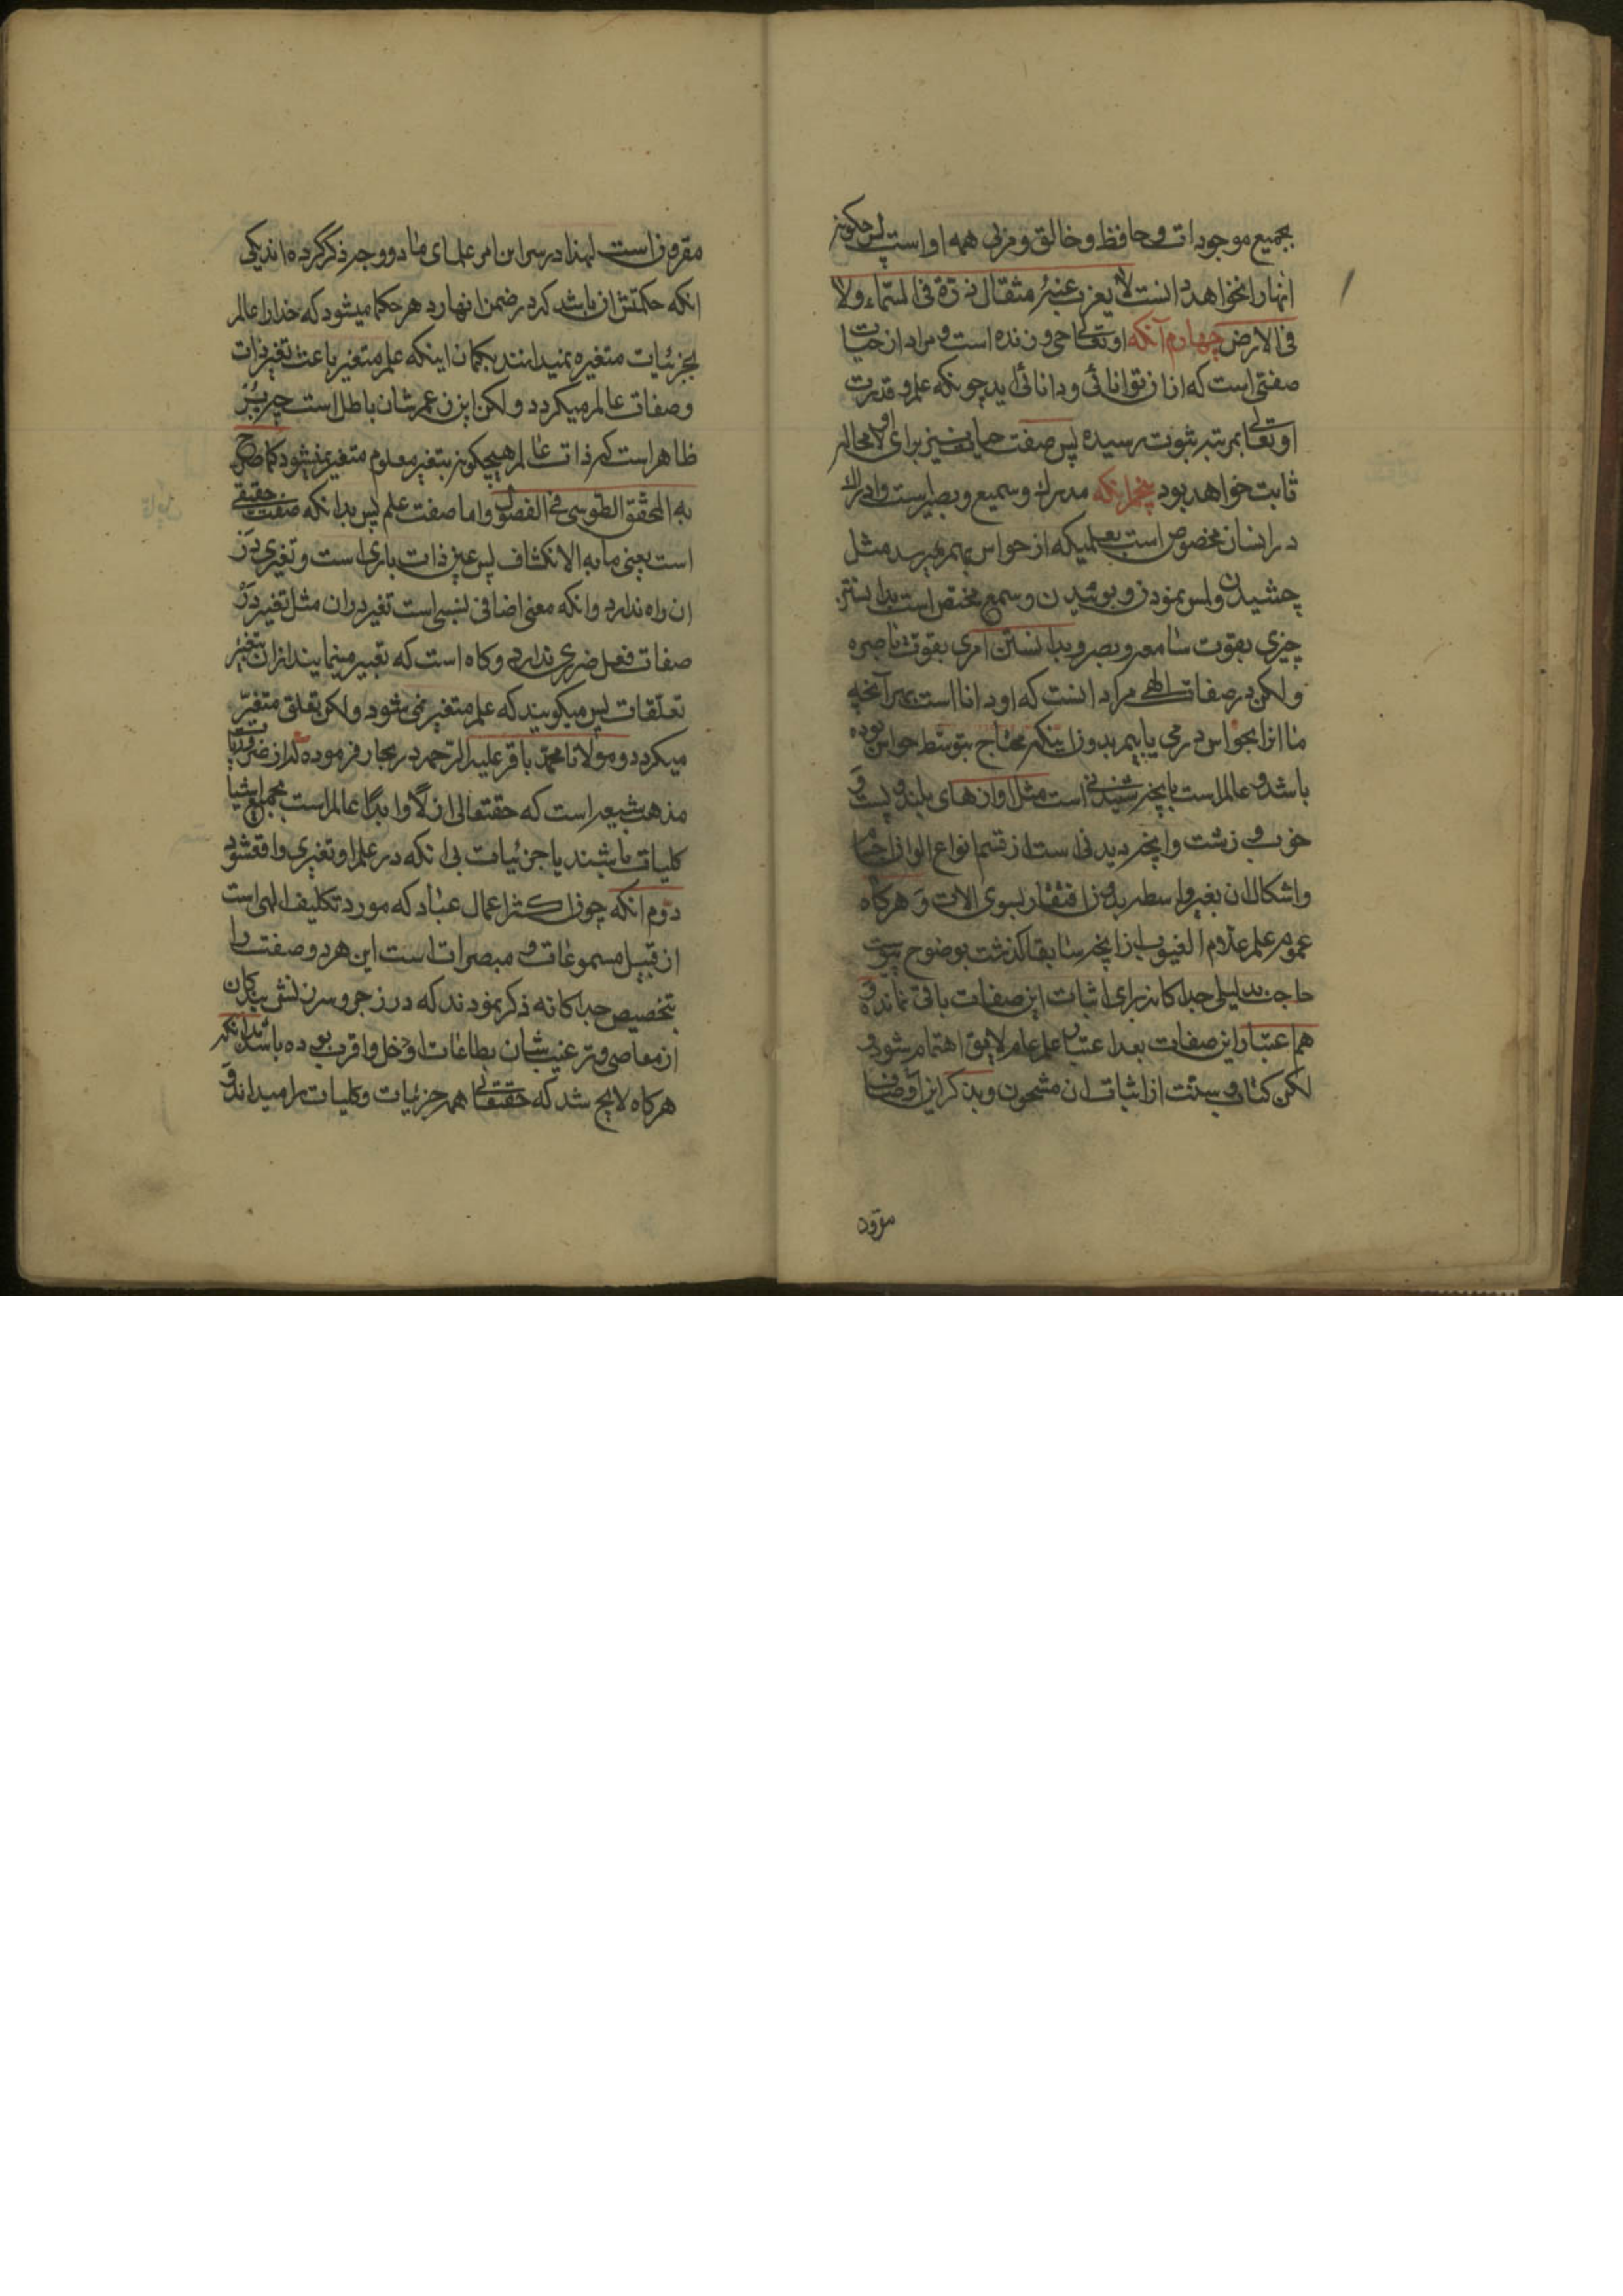 بجمیع موجودات و حافظ و خالق و مربی همه او است پس چکونه
انها را نخواهد دانست لا یعزب عنه مثقال ذرة فی السماء ولا
فی الارض چهارم آنکه او تعالی حی و زنده است و مراد از حیات
صفتی است که از ان توانائی و دانائی اید چونکه علم و قدرت
او تعالی بمرتبه ثبوت رسیده پس صفت حیاة نیز برای او لا محاله
ثابت خواهد بود پنجم انکه مدرک و سمیع و بصیر است و ادراک
در انسان مخصوص است بعلمیکه از حواس بهم میرسد مثل
چشیدن و لمس نمودن و بوئیدن و سمع مختص است بدانستن
چیزی بقوت سامعه و بصر و بدانستن امری بقوت باصره
و لکن در صفات الهی مراد انست که او دانا است بهر آنچه
ما انرا بحواس در می یابیم بدون اینکه محتاج بتوسط حواس بوده
باشد و عالم است بانچه شنیدنی است مثل اوازهای بلند و پست و
خوب و زشت و انچه دیدنی است از قسم انواع الوان اجسام
و اشکال ان بغیر واسطه بدون افتقار بسوی الات و هرکاه
عموم علم علام الغیوب از انچه سابقا کذشت بوضوح پیوست
حاجت بدلیلی جداکانه برای اثبات این صفات باقی نمانده و
هم اعتبار این صفات بعد اعتبار علم عام لایق اهتمام نشود و
لکن کتاب و سنت از اثبات ان مشحون و بذکر این اوصاف
مقرون
مقرون است لهذا در سر این امر علمای ما دو وجه ذکر کرده اند یکی
انکه حکمتش ان باشد که در ضمن انها رد هر حکما میشود که خدا را عالم
بجزئیات متغیره نمیدانند بکمان اینکه علم متغیر باعث تغیر ذات
و صفات عالم میکردد و لکن این زعم شان باطل است چه
ظاهر است که ذات عالم هیچکونه بتغیر معلوم متغیر نمیشود کما صرح
به المحقق الطوسی فی الفصول و اما صفت علم پس بدانکه صفت حقیقی
است یعنی ما به الانکشاف پس عین ذات باری است و تغیری در
ان راه ندارد و انکه معنی اضافی نسبی است تغیر در ان مثل تغیر در
صفات فعل ضرری ندارد و کاه است که تعبیر مینمایند از ان بتغیر
تعلقات پس میکویند که علم متغیر نمی شود و لکن تعلق متغیر
میکردد و مولانا محمد باقر علیه الرحمه در بحار فرموده که از ضروریات
مذهب شیعه است که حقتعالی ازلا و ابدا عالم است بجمیع اشیا
کلیات باشند یا جزئیات بی انکه در علم او تغیری واقع شود
دوم انکه چون اکثر اعمال عباد که مورد تکلیف الهی است
از قبیل مسموعات و مبصرات است این هر دو صفت را
بتخصیص جداکانه ذکر نمودند که در زجر و سرزنش بندکان
از معاصی و ترغیب شان بطاعات ادخل و اقرب بوده باشد
هرکاه لایح شد که حقتعالی همه جزئیات و کلیات را میداند و